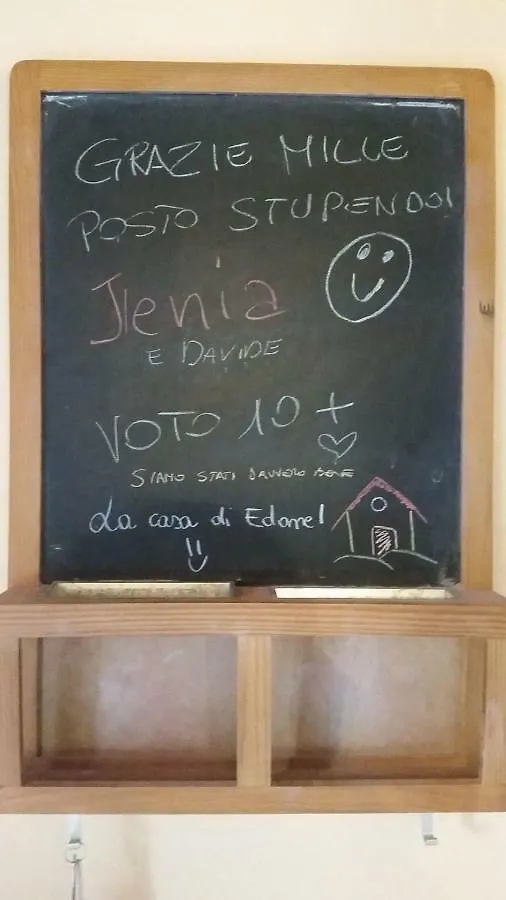 GRAZIE MILLE
POSTO STUPENDO!
Jlenia
E DAVIDE
VOTO 10 +
SIAMO STATI DAVVERO BENE
La casa di Edone!